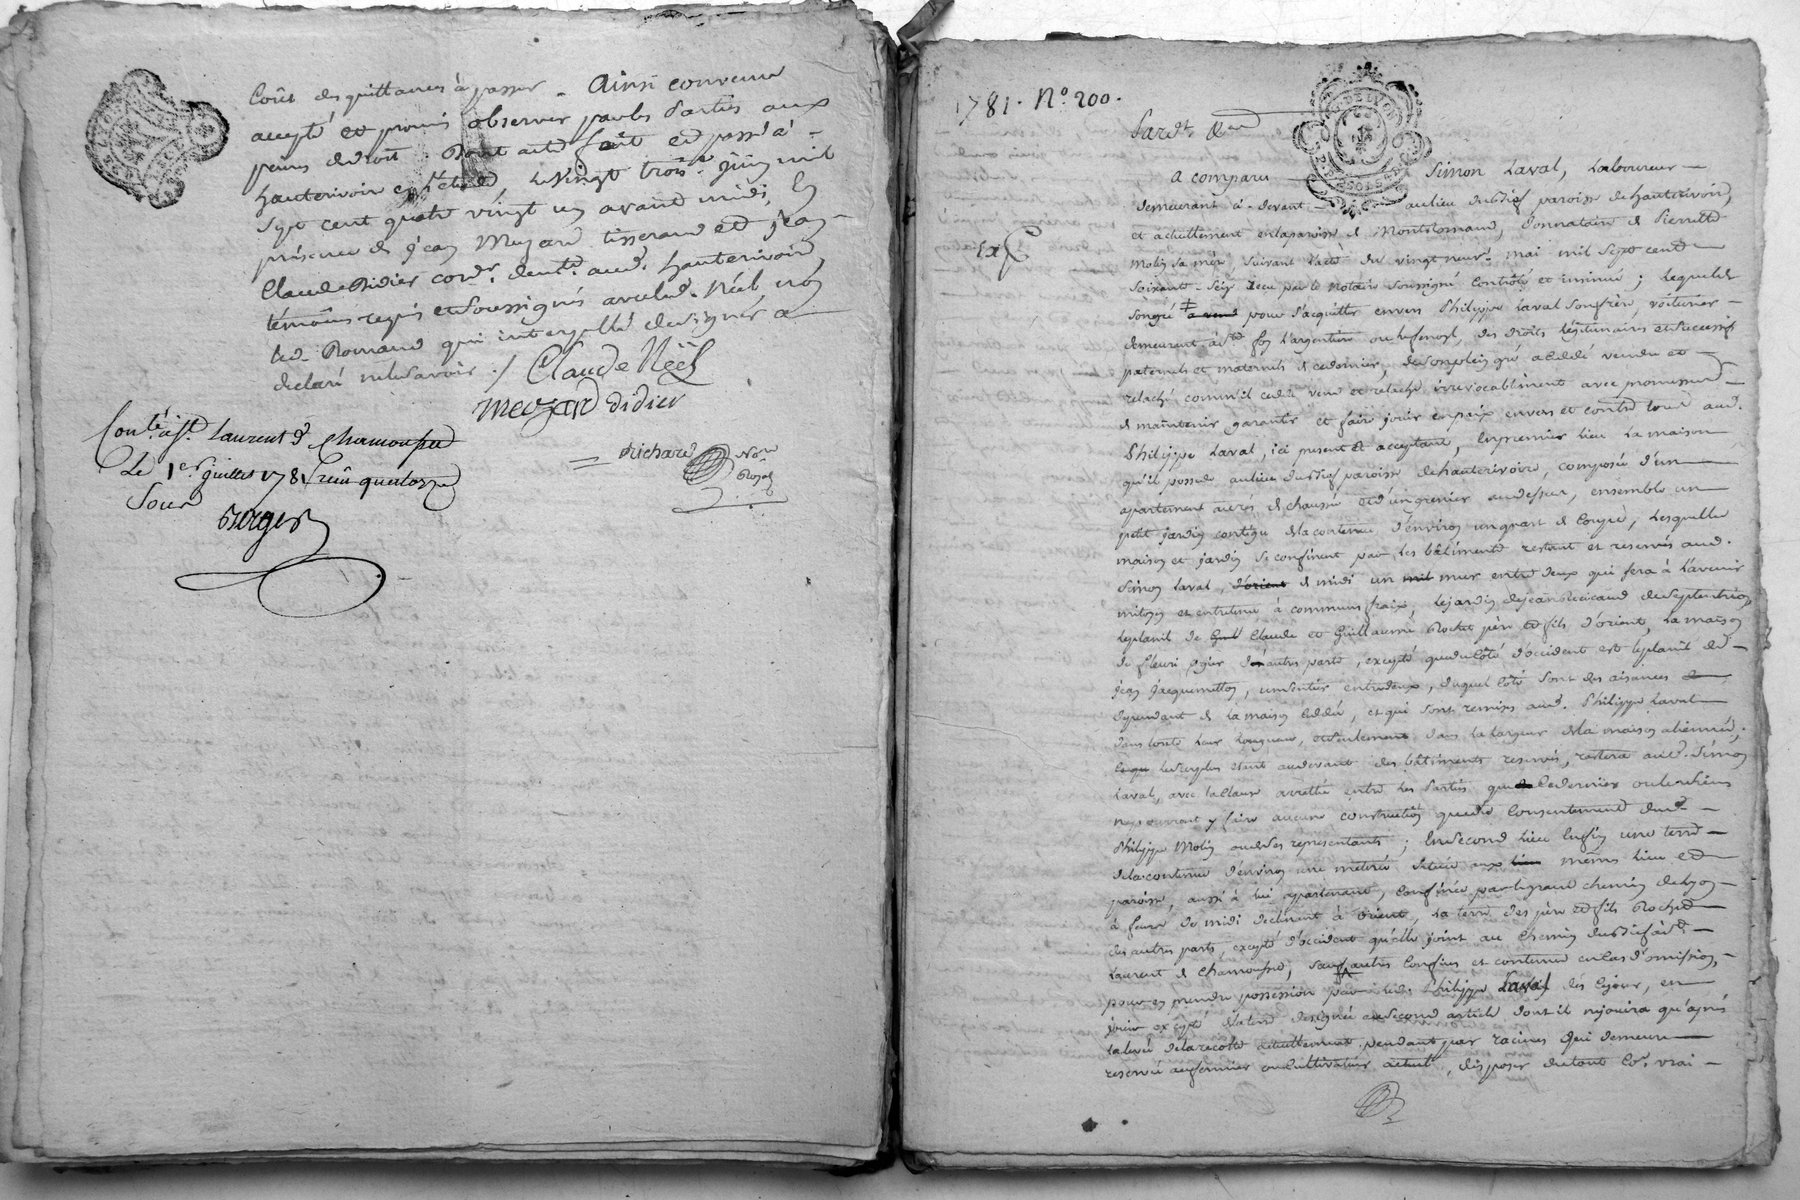 Coût des quittances à passer. Ainsi convenu
accepté et promis observer par les Parties aux
peines de droit. Dont acte fait et passé à
hauterivoir en l'étude, le vingt trois juin mil
Sept cent quatre vingt un avant midi, En
présence de Jean Muzard tisserand et Jean
Claude Didier cordr. demt. aud. hauterivoir,
témoins requis et soussignés avec led. Néel, non
led. Romand qui interpellé de signer a
declaré ne le savoir ./.
Claude Néel
Meuzard didier
Richard Not.
Royal
Conlé. à St. Laurent de Chamousset
Le 1er juillet 1781 reçu quatorze
Sous
Berger
1781. N° 200.
Pardt. &en
G. DE LYON
a comparu Simon Laval, Laboureur
demeurant ci-devant au lieu du Fief paroisse de hauterivoir,
et actuellement en la paroisse de Montromand, Donnataire de Pierrette
Molin sa mère, suivant l'acte du vingt neuf mai mil sept cent
soixante-seize reçu par le Notaire soussigné Contrôlé et insinué ; lequel de
son gré pour s'acquitter envers Philippe Laval son frère, voiturier
demeurant à Ste foy L'argentière, des droits légitimaires et successifs
paternels et maternels de ce dernier, de son plein gré a cédé vendu et
relaché comm'il cede vend et relache irrevocablement avec promesse
de maintenir garantir et faire jouir en paix envers et contre tous aud.
Philippe Laval, ici present et acceptant, En premier lieu La maison
qu'il possede au lieu du Fief paroisse de hauterivoire, composée d'un
apartement au rés de chaussée et d'un grenier au dessus, ensemble un
petit jardin contigu de la contenue d'environ un quart de Coupée, Lesquelles
maison et jardin se confinent par les bâtiments restant et reservés aud.
Simon Laval, de midi un mur entre deux qui sera à l'avenir
mitoyen et entretenu à communs fraix, le jardin de Jean de septentrion,
le plantit de Claude et Guillaume Rochet père et fils d'orient, La maison
de fleuri Ogier des autres parts, excepté que du côté d'occident est le plantit de
Jean Jacquemetton, un sentier entre deux, duquel côté sont des aisances
dependant de la maison cédée, et qui sont remises aud. Philippe Laval
dans toute leur longueur, et seulement dans la largeur de la maison alienée ;
le surplus etant audevant des bâtiments reservés, restera aud. Simon
Laval, avec la clause arretée entre les Parties que ce dernier ou les siens
ne pourront y faire aucune construction que de consentement dud.
Philippe Molin ou de ses representants ; En second lieu Enfin une terre
de la contenue d'environ une metérée située aux même lieu et
paroisse, aussi à lui apartenant, Confinée par le grand chemin de Lyon
à feurs de midi declinant à orient, La terre des père et fils Rochet
des autres parts, excepté d'occident qu'elle joint au Chemin du Fief à St.
Laurent de Chamousset, sauf autres Confins et contenue en cas d'omission,
pour en prendre possession par led. Philippe Laval dès ce jour, en
jouir excepté de la terre designée au second article dont il ne jouira qu'après
la levée de la recolte actuellement pendant par racines qui demeure
reservée au fermier ou Cultivateur actuel, disposer du tout Co. vrai